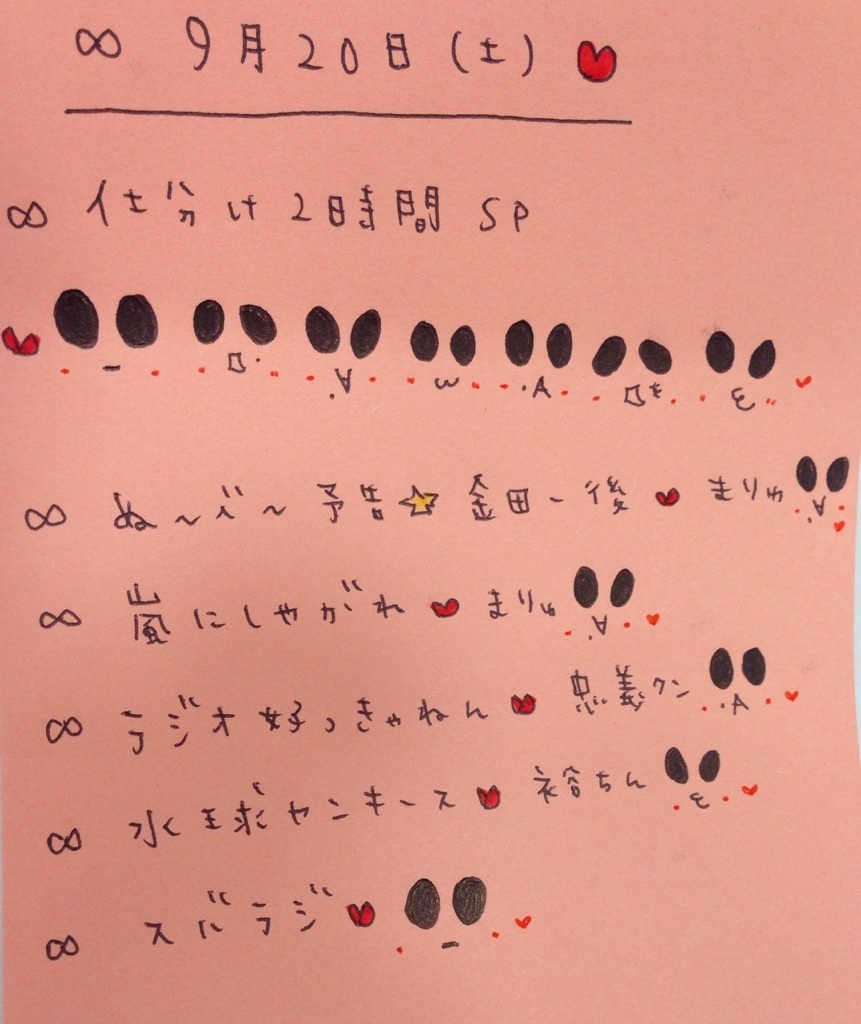 ∞ 9月20日(土)
∞ 仕分け2時間SP
∞ ぬ~べ~予告☆金田一後♥まりゅ
∞ 嵐にしやがれ♥まりゅ
∞ ラジオ好っきゃねん♥忠義クン
∞ 水球ヤンキース♥裕ちん
∞ スバラジ♥